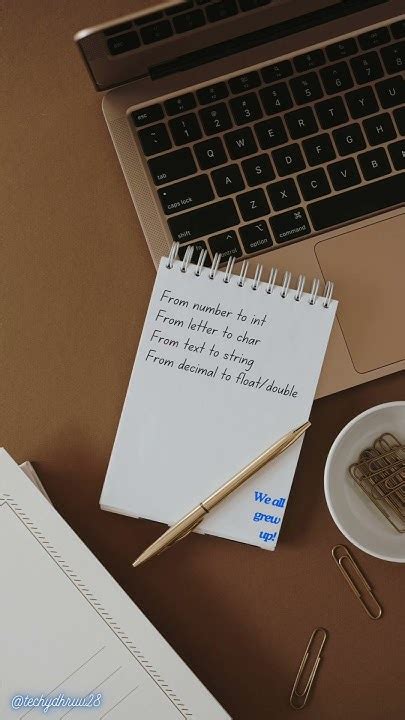 esc
1
2
3
4
5
6
7
8
tab
Q
W
E
R
T
Y
U
I
caps lock
A
S
D
F
G
H
J
K
shift
Z
X
C
V
B
N
control
option
command
From number to int
From letter to char
From text to string
From decimal to float/double
We all
grew
up!
@techydhruv28